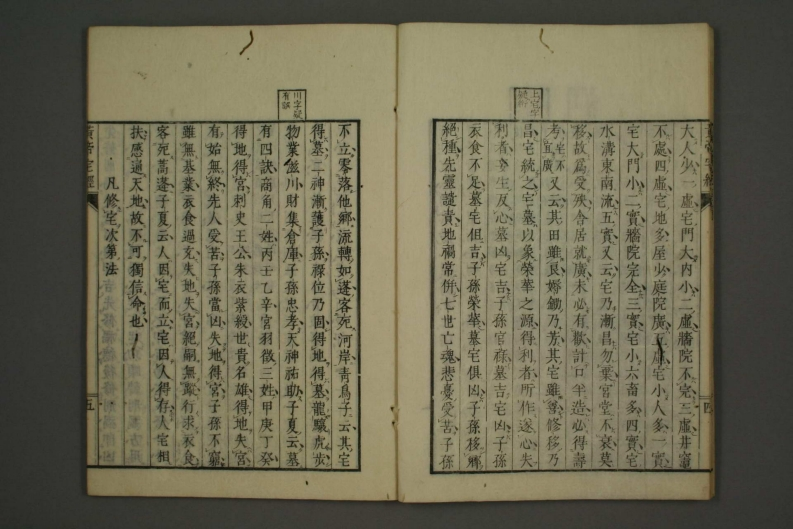 大人少一虛宅門大內小二虛牆院不完三虛井竈
不處四虛宅地多屋少庭院廣五虛宅小人多一實
宅大門小二實牆院完全三實宅小六畜多四實宅
水溝東南流五實又云宅乃漸昌勿棄宮堂不衰莫
移故爲受殃舍居就廣未必有歡計口半造必得壽
考宅不宜廣又云其田雖良耨鋤乃芳其宅雖善修移乃
昌宅統之宅墓以象榮華之源得利者所作遂心失
利者妄生反心墓凶宅吉子孫官祿墓吉宅凶子孫
衣食不足墓宅俱吉子孫榮華墓宅俱凶子孫移鄉
絕種先靈譴責地禍常併七世亡魂悲憂受苦子孫
不立零落他鄉流轉如蓬客死河岸靑烏子云其宅
得墓二神漸護子孫祿位乃固得地得墓龍驤虎步
物業滋川財集倉庫子孫忠孝天神祐助子夏云墓
有四訣商角二姓丙壬乙辛宮羽徵三姓甲庚丁癸
得地得宮刺史王公朱衣紫綬世貴名雄得地失宮
有始無終先人受苦子孫當凶失地得宮子孫不窮
雖無基業衣食過充失地失宮絕嗣無蹤行求衣食
客死蒿蓬子夏云人因宅而立宅因人得存人宅相
扶感通天地故不可獨信命也
凡修宅次第法
黃帝宅經
四
五
川字疑有誤